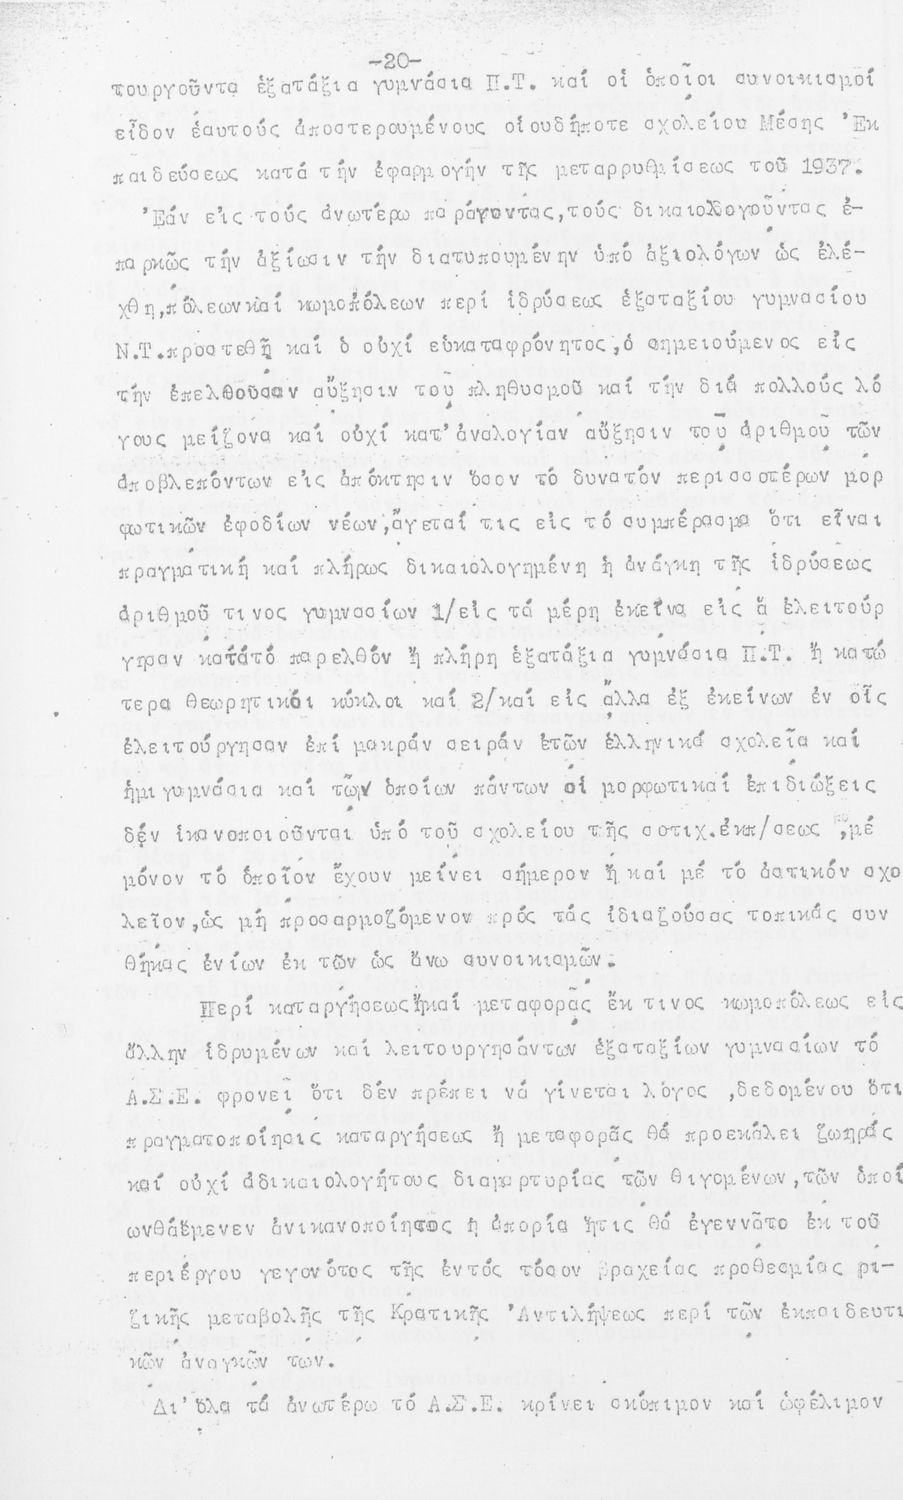 -20-
τουργοῦντα ἑξατάξια γυμνάσια Π.Τ. καί οἱ ὁποῖοι συνοικισμοί
εἶδον ἑαυτούς ἀποστερουμένους οἱουδήποτε σχολείου Μέσης Ἐκ
παιδεύσεως κατά τήν ἐφαρμογήν τῆς μεταρρυθμίσεως τοῦ 1937.
Ἐάν εἰς τούς ἀνωτέρω παράγοντας,τούς δικαιολογοῦντας ἐ-
παρκῶς τήν ἀξίωσιν τήν διατυπουμένην ὑπό ἀξιολόγων ὡς ἐλέ-
χθη,πόλεων καί κωμοπόλεων περί ἱδρύσεως ἑξαταξίου γυμνασίου
Ν.Τ.προστεθῇ καί ὁ οὐχί εὐκαταφρόνητος,ὁ σημειούμενος εἰς
τήν ἐπελθοῦσαν αὔξησιν τοῦ πληθυσμοῦ καί τήν διά πολλούς λό
γους μείζονα καί οὐχί κατ'ἀναλογίαν αὔξησιν τοῦ ἀριθμοῦ τῶν
ἀποβλεπόντων εἰς ἀπόκτησιν ὅσον τό δυνατόν περισσοτέρων μορ
φωτικῶν ἐφοδίων νέων,ἄγεταί τις εἰς τό συμπέρασμα ὅτι εἶναι
πραγματική καί πλήρως δικαιολογημένη ἡ ἀνάγκη τῆς ἱδρύσεως
ἀριθμοῦ τινος γυμνασίων 1/εἰς τά μέρη ἐκεῖνα εἰς ἅ ἐλειτούρ
γησαν κατάτό παρελθόν ἤ πλήρη ἑξατάξια γυμνάσια Π.Τ. ἤ κατώ
τερα θεωρητικοί κύκλοι καί 2/καί εἰς ἄλλα ἐξ ἐκείνων ἐν οἷς
ἐλειτούργησαν ἐπί μακράν σειράν ἐτῶν ἑλληνικά σχολεῖα καί
ἡμιγυμνάσια καί τῶν ὁποίων πάντων οἱ μορφωτικαί ἐπιδιώξεις
δέν ἱκανοποιοῦνται ὑπό τοῦ σχολείου τῆς σοτιχ.ἐκπ/σεως ,μέ
μόνον τό ὁποῖον ἔχουν μείνει σήμερον ἤ καί μέ τό ἀστικόν σχο
λεῖον,ὡς μή προσαρμοζόμενον πρός τάς ἰδιαζούσας τοπικάς συν
θήκας ἐνίων ἐκ τῶν ὡς ἄνω συνοικισμῶν.
Περί καταργήσεως ἤκαί μεταφορᾶς ἔκ τινος κωμοπόλεως εἰς
ἄλλην ἱδρυμένων καί λειτουργησάντων ἑξαταξίων γυμνασίων τό
Α.Σ.Ε. φρονεῖ ὅτι δέν πρέπει νά γίνεται λόγος ,δεδομένου ὅτι
πραγματοποίησις καταργήσεως ἤ μεταφορᾶς θά προεκάλει ζωηράς
καί οὐχί ἀδικαιολογήτους διαμαρτυρίας τῶν θιγομένων,τῶν ὁποί
ωνθάἔμενεν ἀνικανοποίητος ἡ ἀπορία ἥτις θά ἐγεννᾶτο ἐκ τοῦ
περιέργου γεγονότος τῆς ἐντός τόσον βραχείας προθεσμίας ρι-
ζικῆς μεταβολῆς τῆς Κρατικῆς Ἀντιλήψεως περί τῶν ἐκπαιδευτι
κῶν ἀναγκῶν των.
Δι'ὅλα τά ἀνωτέρω τό Α.Σ.Ε. κρίνει σκόπιμον καί ὠφέλιμον